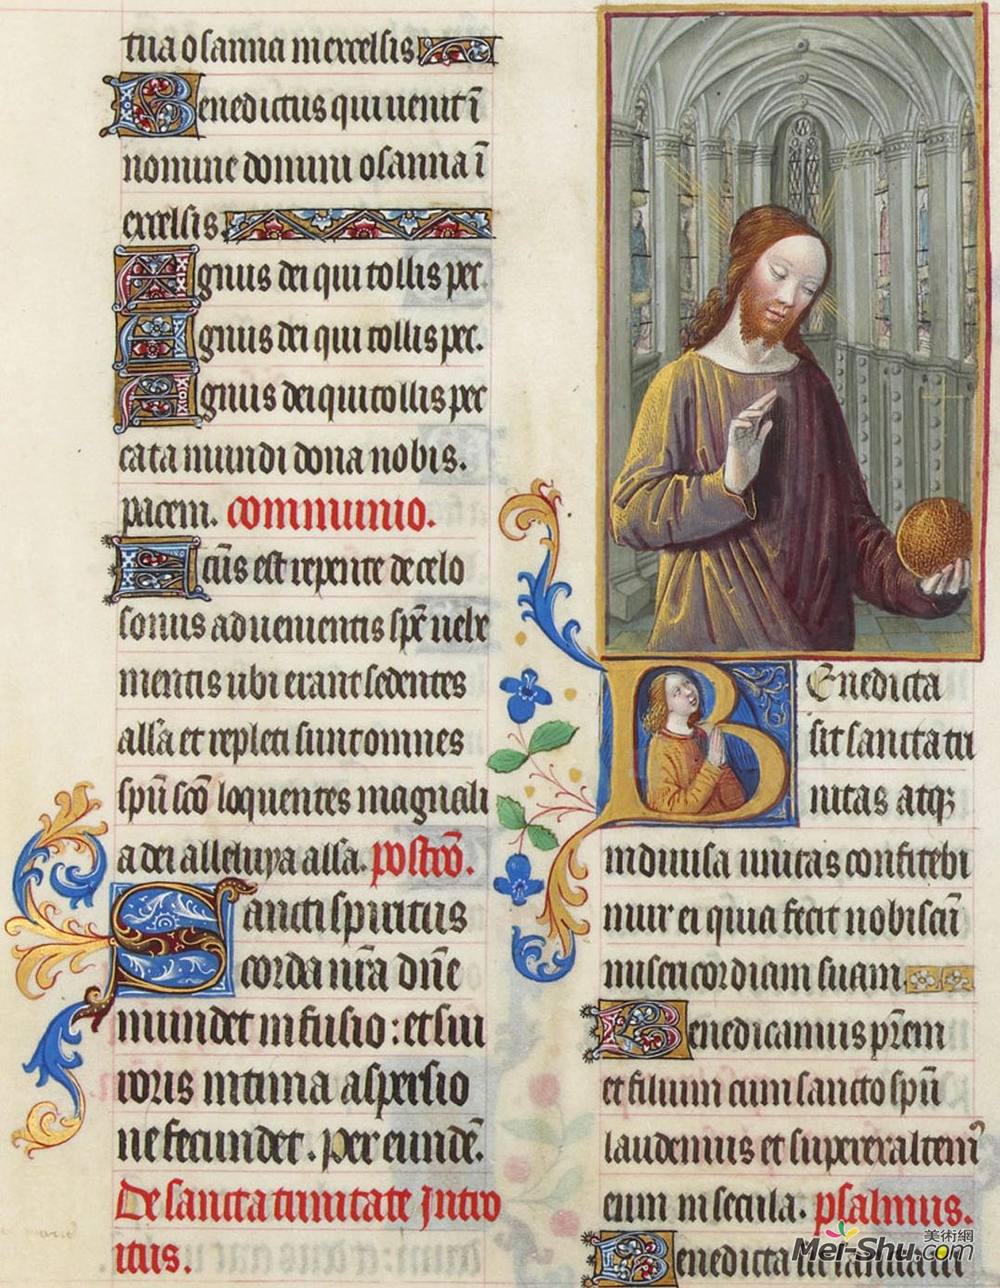 tua osanna in excelsis
Benedictus qui uenit ī
nomine domini osanna ī
excelsis.
Agnus dei qui tollis pec.
Agnus dei qui tollis pec.
Agnus dei qui tollis pec
cata mundi dona nobis.
pacem. communio.
Factus est repente de celo
sonus aduenientis sp̄c uehe
mentis ubi erant sedentes
all̄a et repleti sunt omnes
spū scō loquentes magnali
a dei alleluya alla. postcō.
Sancti spiritus
corda nr̄a dn̄e
mundet infusio: et sui
roris intima aspersio
ne fecundet. per eundē.
De sancta trinitate Intro
itus.
Benedicta
sit sancta tri
nitas atqꝫ
indiuisa unitas confitebi
mur ei quia fecit nobiscū
misericordiam suam
Benedicamus pr̄em
et filium cum sancto spū
laudemus et superexaltem᷒
eum in secula. psalmus.
Benedicta sit sancta tri
美術網
Mei-Shu.com